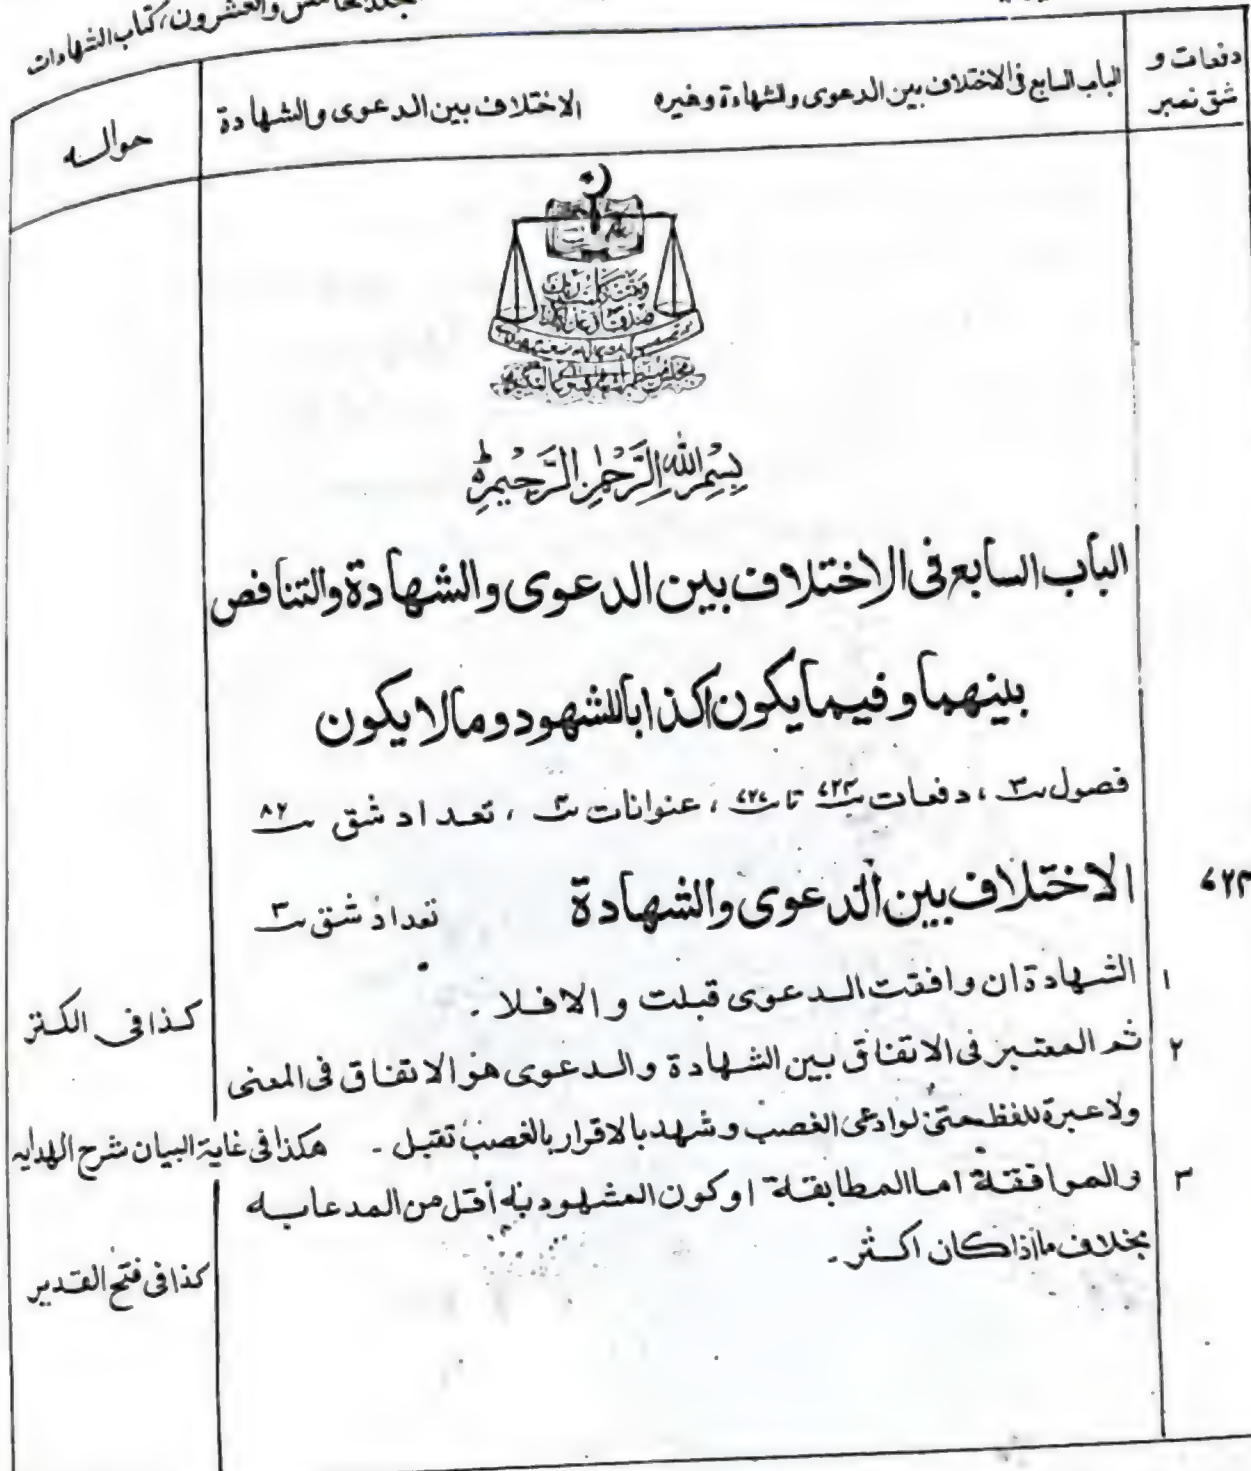 والعشرون، كتاب الشهادات
دفعات و شق نمبر
الباب السابع فى الاختلاف بين الدعوى والشهادة وغيره
الاختلاف بين الدعوى والشهادة
حواله
بِسْمِ اللهِ الرَّحْمٰنِ الرَّحِيْمِ
الباب السابع فى الاختلاف بين الدعوى والشهادة والتنافص
بينهما وفيما يكون اكذابا للشهود ومالا يكون
فصول ٣ ، دفعات تا ، عنوانات ، تعداد شق ٨٢
الاختلاف بين الدعوى والشهادة تعداد شق ٣
١ الشهادة ان وافقت الدعوى قبلت والافلا . كذا فى الكنز
٢ ثم المعتبر فى الاتفاق بين الشهادة والدعوى هو الاتفاق فى المعنى
ولاعبرة للفظ حتى لو ادعى الغصب وشهد بالاقرار بالغصب تقبل . هكذا فى غاية البيان شرح الهدايه
٣ والموافقة اما المطابقة او كون المشهود به أقل من المدعابه
بخلاف ما اذا كان اكثر . كذا فى فتح القدير